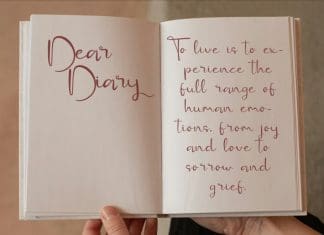 Dear
Diary
To live is to ex-
perience the
full range of
human emo-
tions, from joy
and love to
sorrow and
grief.